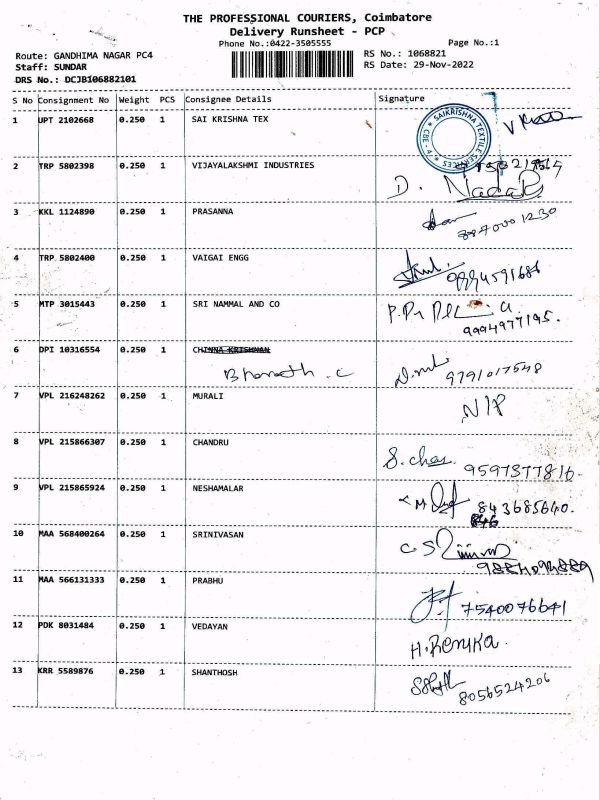 THE PROFESSIONAL COURIERS, Coimbatore
Delivery Runsheet - PCP
Phone No.:0422-3505555
Page No.:1
Route: GANDHIMA NAGAR PC4
RS No.: 1068821
Staff: SUNDAR
RS Date: 29-Nov-2022
DRS No.: DCJB106882101
S No Consignment No Weight PCS Consignee Details Signature
1 UPT 2102668 0.250 1 SAI KRISHNA TEX
2 TRP 5802398 0.250 1 VIJAYALAKSHMI INDUSTRIES
D.
3 KKL 1124890 0.250 1 PRASANNA
4 TRP 5802400 0.250 1 VAIGAI ENGG
9994591686
5 MTP 3015443 0.250 1 SRI NAMMAL AND CO
9994977195.
6 DPI 10316554 0.250 1 CHINNA KRISHNAN
Bharath . C 9791017548
7 VPL 216248262 0.250 1 MURALI
N/P
8 VPL 215866307 0.250 1 CHANDRU
9597377816.
9 VPL 215865924 0.250 1 NESHAMALAR
843685640.
846
10 MAA 568400264 0.250 1 SRINIVASAN
11 MAA 566131333 0.250 1 PRABHU
7540076641
12 PDK 8031484 0.250 1 VEDAYAN
H.RENUKA.
13 KRR 5589876 0.250 1 SHANTHOSH
8056524206